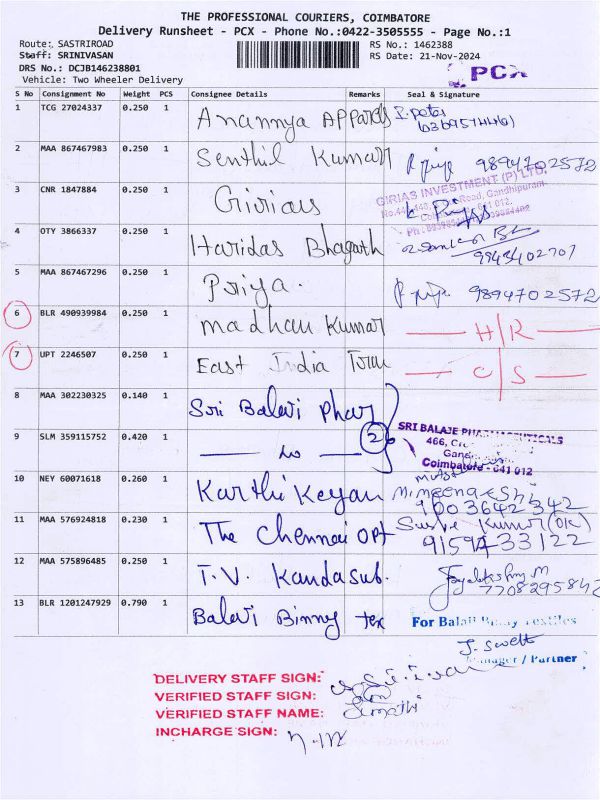 THE PROFESSIONAL COURIERS, COIMBATORE
Delivery Runsheet - PCX - Phone No.:0422-3505555 - Page No.:1
Route: SASTRIROAD
RS No.: 1462388
Staff: SRINIVASAN
RS Date: 21-Nov-2024
DRS No.: DCJB146238801
Vehicle: Two Wheeler Delivery
PCX
S No Consignment No Weight PCS Consignee Details Remarks Seal & Signature
1 TCG 27024337 0.250 1 Anannya Apparels
2 MAA 867467983 0.250 1 Senthil Kumar 9894702572
GIRIAS INVESTMENT (P) LTD.
3 CNR 1847884 0.250 1 Girias
4 OTY 3866337 0.250 1 Haridas Bhagath
9943402707
5 MAA 867467296 0.250 1 Priya. 9894702572
6 BLR 490939984 0.250 1 madhan Kumar H/R
7 UPT 2246507 0.250 1 East India Turm C/S
8 MAA 302230325 0.140 1 Sri Balaji Phar
SRI BALAJE PHARMACEUTICALS
9 SLM 359115752 0.420 1 2
Coimbatore - 641 012
10 NEY 60071618 0.260 1 Karthikeyan M. meenakshi
9003642342
11 MAA 576924818 0.230 1 The Chennai Opt Kumar (OK)
9159433122
12 MAA 575896485 0.250 1 T.V. Kandasub. M
7708295842
13 BLR 1201247929 0.790 1 Balaji Binny tex For Balaji Binny Textiles
Manager / Partner
DELIVERY STAFF SIGN:
VERIFIED STAFF SIGN:
VERIFIED STAFF NAME:
INCHARGE SIGN: